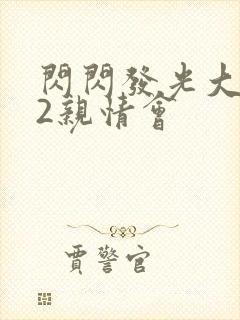 閃閃發光大
2親情會
賈警官